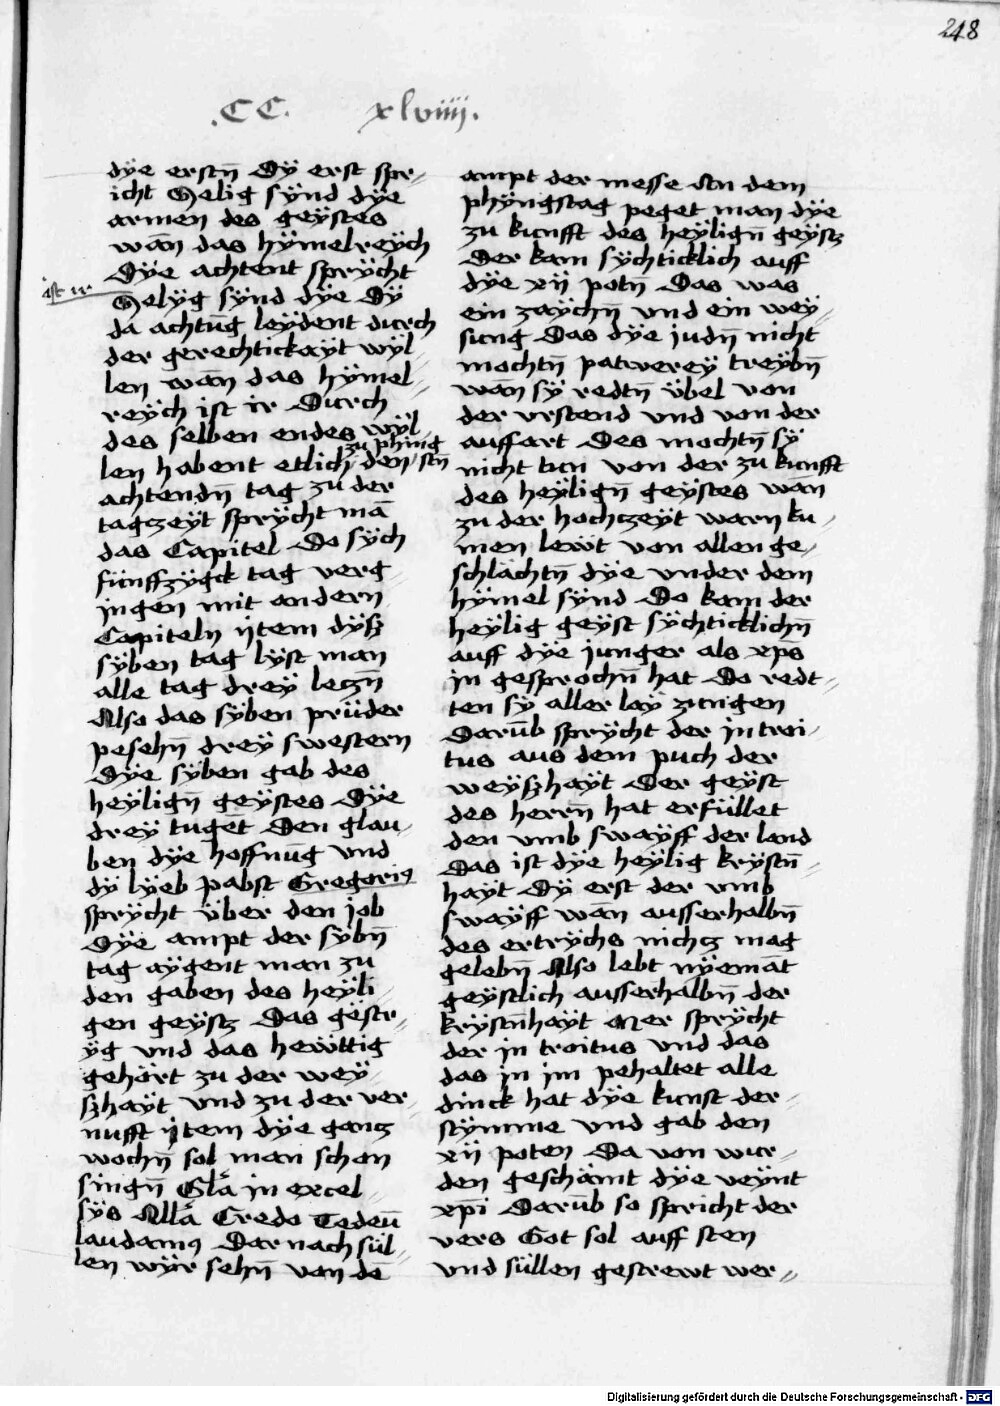 248
.CC. xlviiij.
dÿe erstn̄ Dÿ erst spr-
icht Selig sÿnd dÿe
armen des geÿstes
wān das hÿmelreÿch
Dÿe achtent sprÿcht
ist ir
Selÿg sÿnd dÿe Dÿ
da achtūg leÿdent durch
der gerechtickaÿt wÿl-
len wān das hÿmel-
reÿch ist ir Durch
des selben endes wÿl-
zu phing
len habent etlich den stn̄
achtendn̄ tag zu der
tagczeÿt sprÿcht mā
das Capitel Do sÿch
fünffzÿgck tag verg-
jngen mit andern
Capiteln ijtem dÿsz
sÿben tag lÿst man
alle tag dreÿ leczn̄
Also das sÿben prüder
pesehn̄ dreÿ swestern
Dÿe sÿben gab des
heÿlign̄ geÿstes Dÿe
dreÿ tugēt Den glau-
ben dÿe hoffnūg vnd
dÿ lÿeb pabst Gregoriꝯ
sprÿcht über den job
Dÿe ampt der sÿbn̄
tag aÿgent man zu
den gaben des heÿli-
gen geÿstz Das gestr-
ÿg vnd das hewttig
gehört zu der weÿ-
szhaÿt vnd zu der ver-
nufft ijtem dÿe gancz
wochn̄ sol man schon
singn̄ Glā in excel-
sÿs Allā Credo Tedeū
laudamꝯ Dar nach sül-
len wÿr sehn̄ von dē
ampt der messe An dem
phÿngstag peget man dÿe
zu kunfft des heÿlign̄ geÿstz
Der kam sÿchticklich auff
dÿe xij potn̄ Das was
ein zaÿchn̄ vnd ein weÿ-
sung Das dÿe judn̄ nicht
mochtn̄ patwereÿ treÿbn̄
wān sÿ redtn̄ übel von
der vrstend vnd von der
auffart Des mochtn̄ sÿ
nicht tun von der zu kunfft
des heÿlign̄ geÿstes wān
zu der hochczeÿt warn ku-
men lewt von allen ge-
schlächtn̄ dÿe vnder dem
hÿmel sÿnd Do kam der
heÿlig geÿst sÿchticklichn̄
auff dÿe junger als xp̄s
in gesprochn̄ hat Do redt-
ten sÿ aller laÿ zungen
Darūb sprÿcht der introi-
tus aus dem puch der
weÿszhaÿt Der geÿst
des herrn̄ hat erfüllet
den vmb swaÿff der land
Das ist dÿe heÿlig krÿstn̄-
haÿt Dÿ erst der vmb
swaÿff wān ausserhalbn̄
des ertrÿchs nichcz mag
gelebn̄ Also lebt nÿemāt
geÿstlich ausserhalbn̄ der
krÿstn̄haÿt Mer sprÿcht
der in troitus vnd das
das in im pehaltet alle
dinck hat dÿe kunst der-
stÿmme vnd gab den
xij poten Da von wur-
den geschämt dÿe veÿnt
xp̄i Darūb so spricht der
vers Got sol auff sten
vnd süllen gestrewt wer-
Digitalisierung gefördert durch die Deutsche Forschungsgemeinschaft - DFG